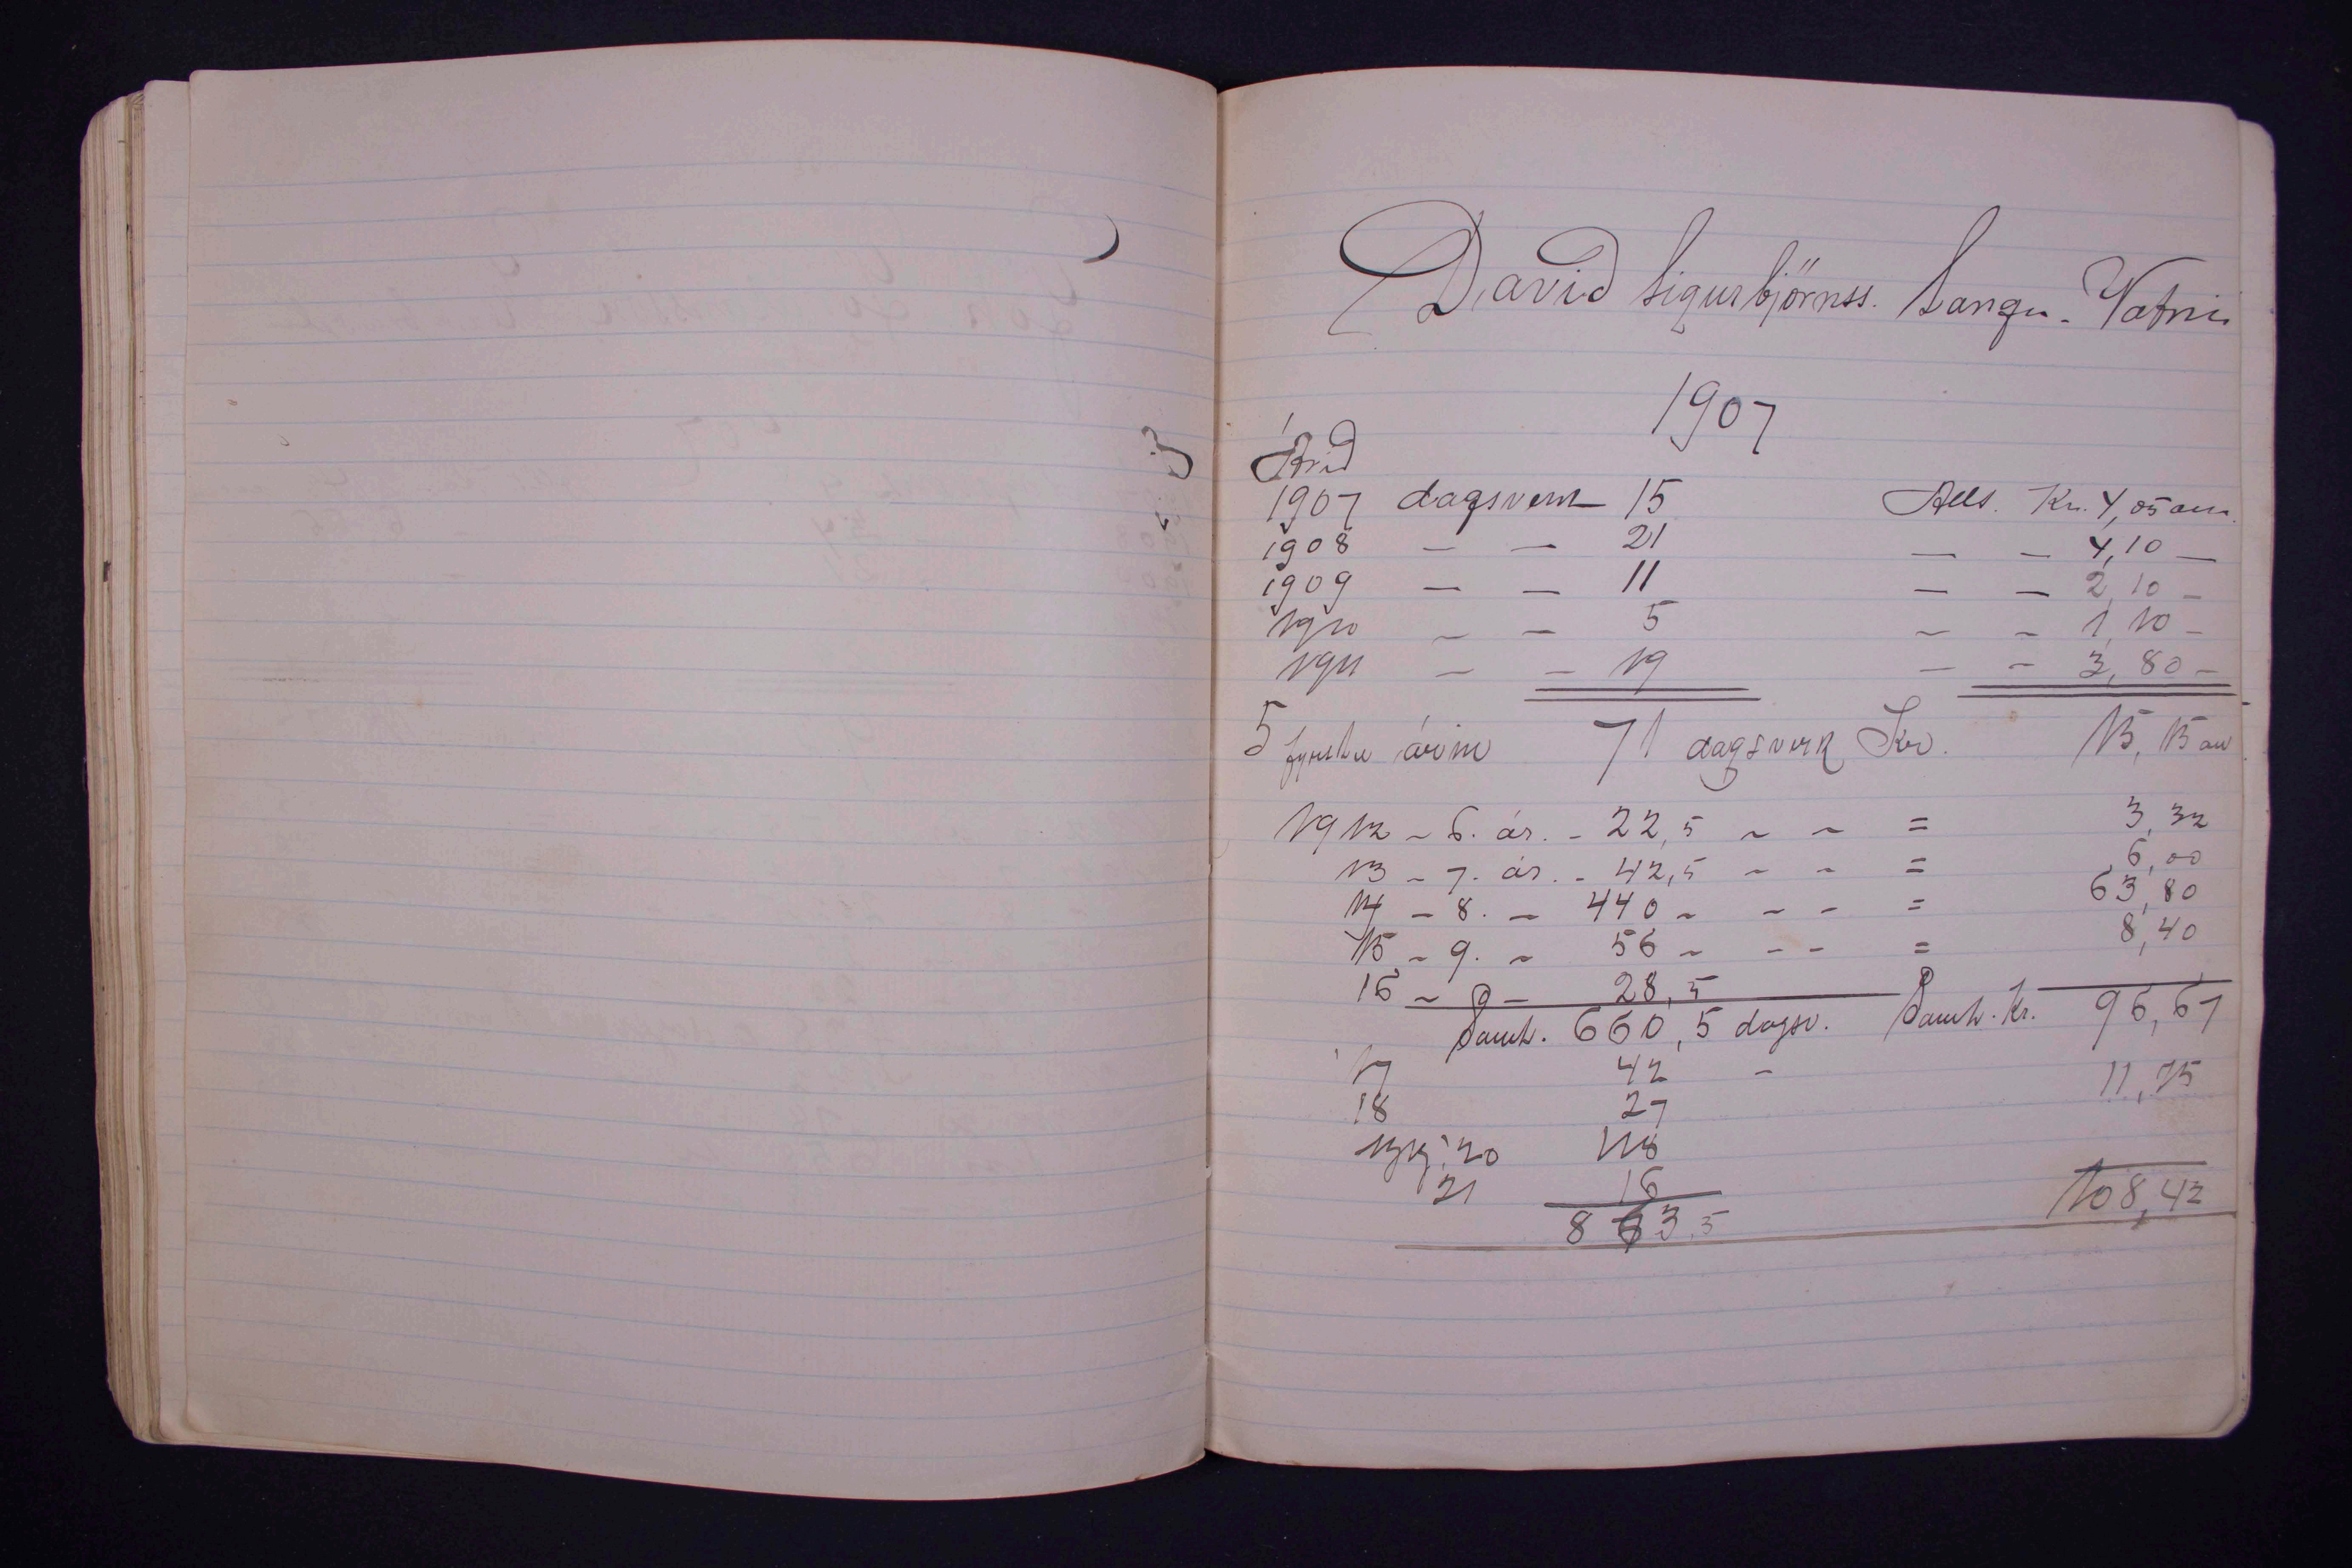 David Sigurbjörnss. Langa-Vatni
1907
Árið
1907 dagsverk 15 Alls. Kr. 4,05 au.
1908 — — 21 — — 4,10 —
1909 — — 11 — — 2,10 –
1910 – – 5 – – 1,10 –
1911 – – 19 – – 3,80 –
5 fyrstu árin 71 dagsverk Kr. 15,15 au
1912 – 6. ár. – 22,5 – – = 3,32
13 – 7. ár. – 42,5 – – = 6,00
14 – 8. – 440 – – – = 63,80
15 – 9. – 56 – – – = 8,40
16 – 9 – 28,5
Samt. 660,5 dagsv. Samt. Kr. 96,67
17 42 – 11,75
18 27
20 118
21 16
863,5 108,42